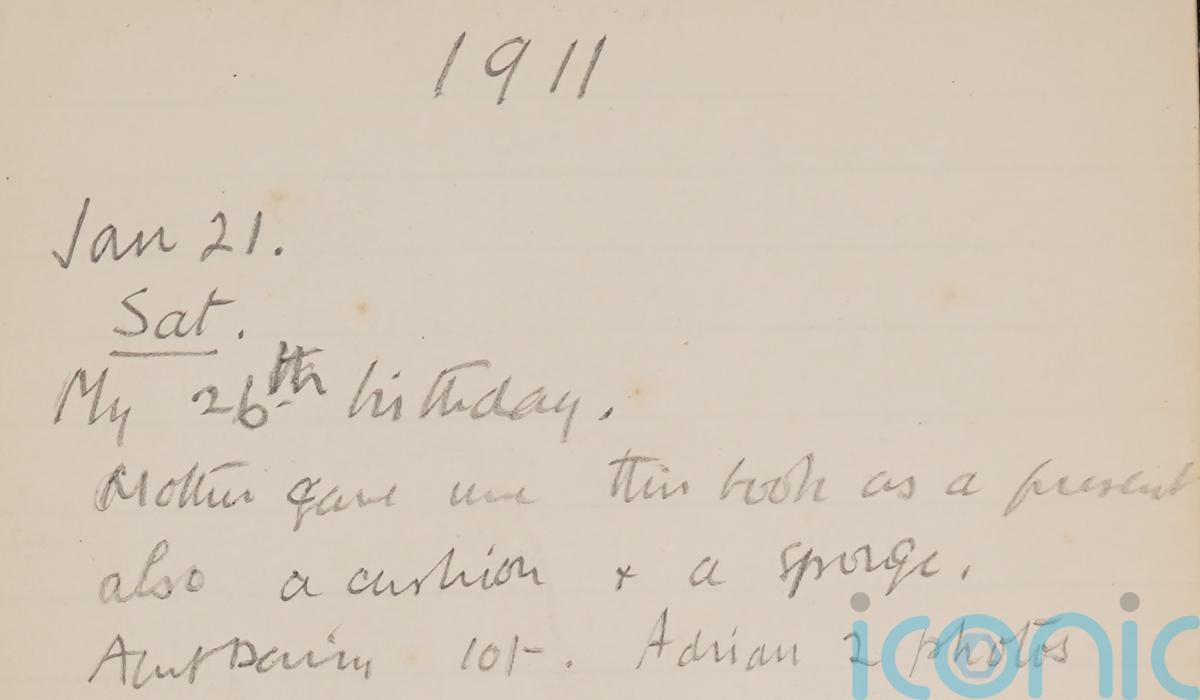 1911
Jan 21.
Sat.
My 26th birthday.
Mother gave me this book as a present
also a cushion & a sponge.
Aunt Daisy 10/-. Adrian 2 photos
iconic